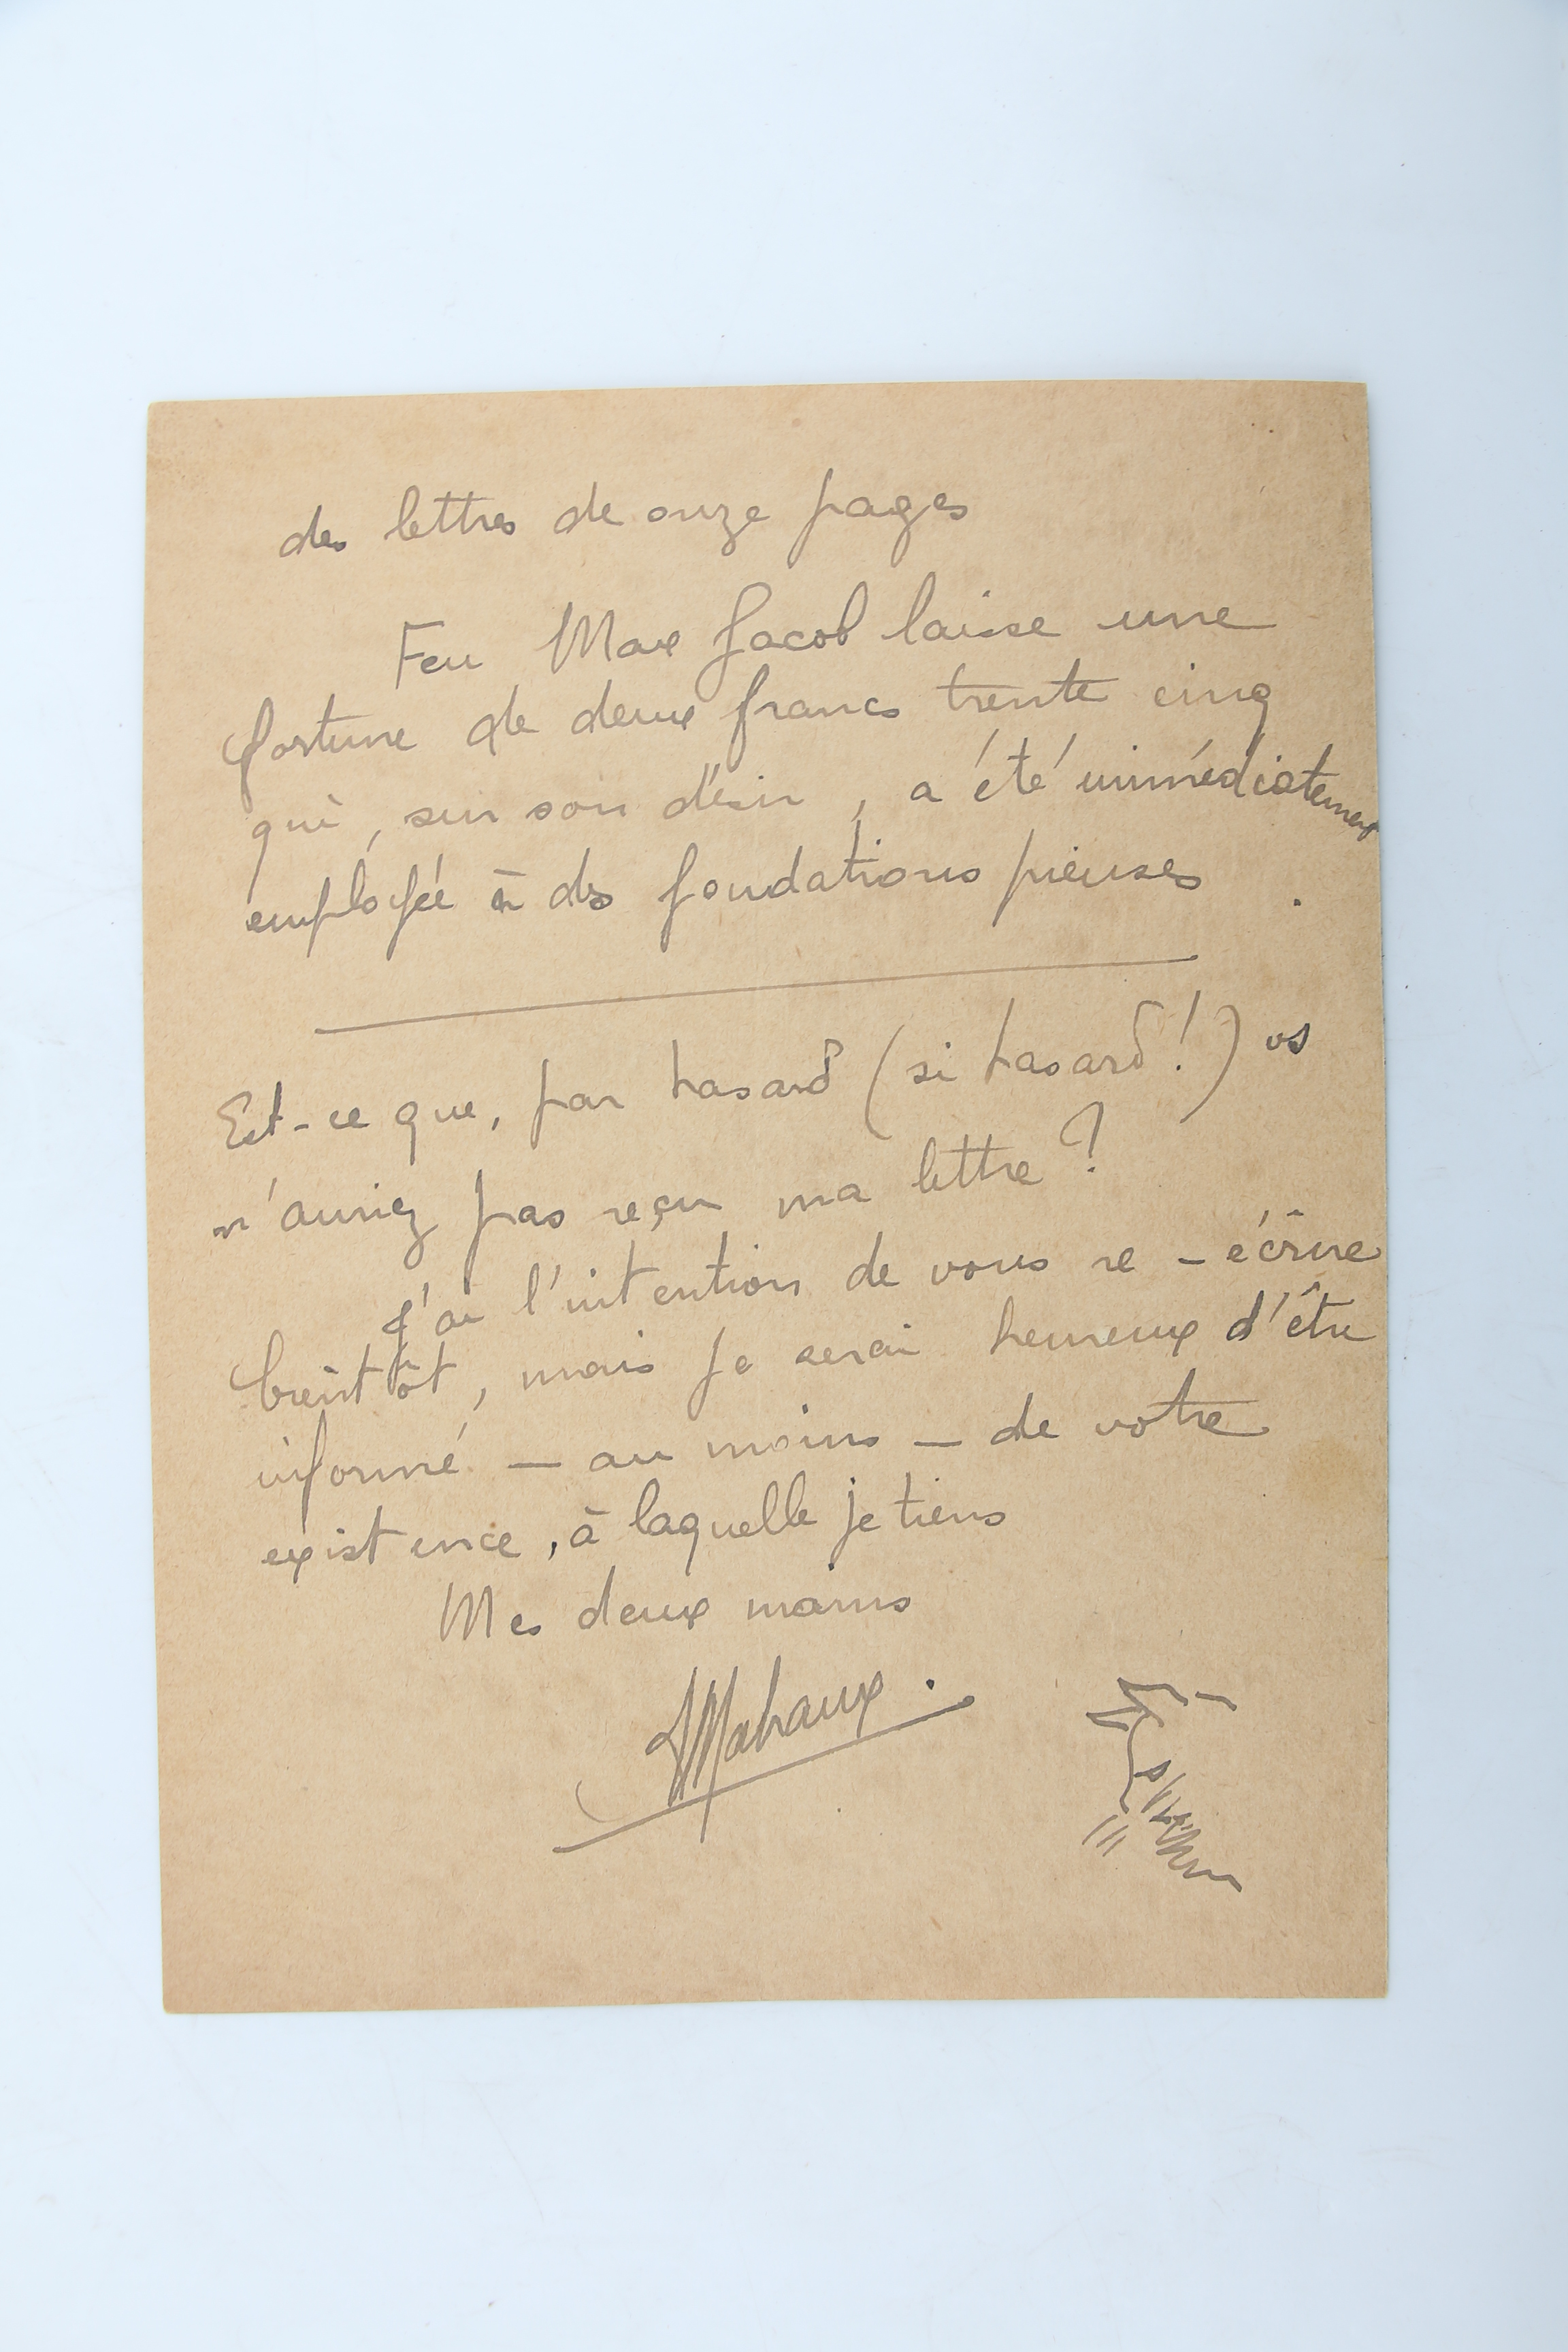 des lettres de onze pages
Feu Max Jacob laisse une
fortune de deux francs trente cinq
qui, sur son désir, a été immédiatement
employée à des fondations pieuses.
Est-ce que, par hasard (si hasard!) vs
n'auriez pas reçu ma lettre?
J'ai l'intention de vous re-écrire
bientôt, mais je serai heureux d'être
informé – au moins – de votre
existence, à laquelle je tiens
Mes deux mains
Malraux.